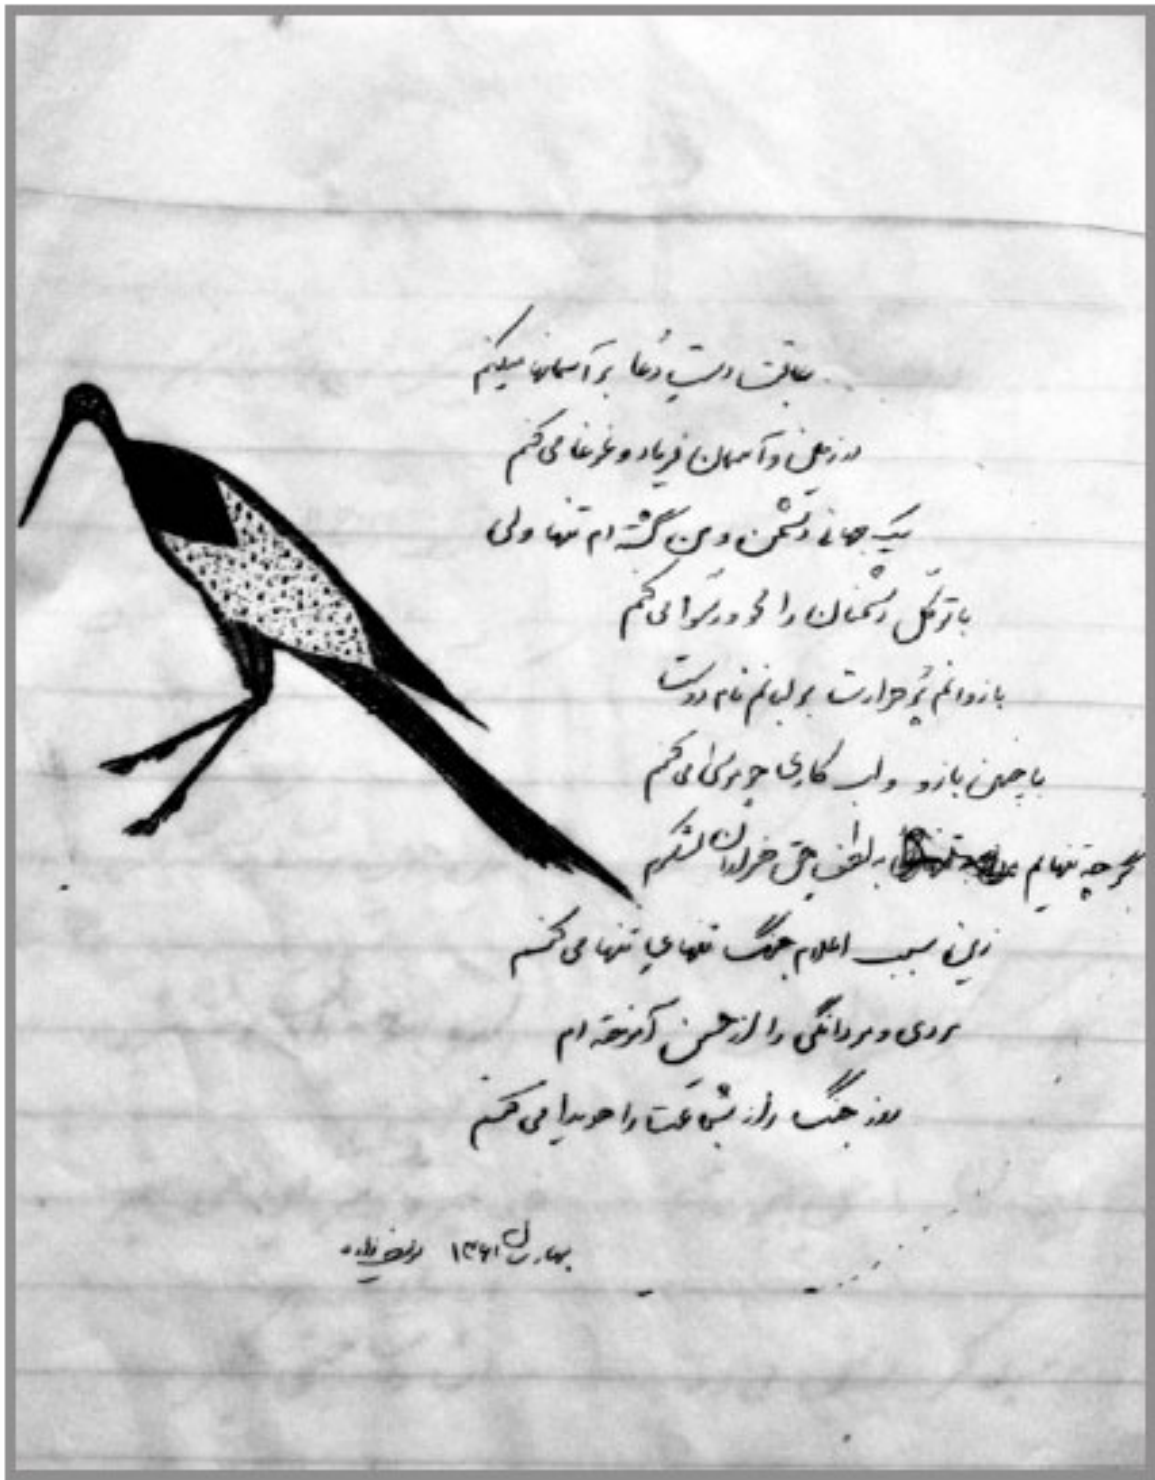 عاقبت دست دعا بر آسمانها میکنم
در زمین و آسمان فریاد و غوغا می کنم
یک جهانی دشمن و من گشته ام تنها ولی
با توکل دشمنان را خرد و رسوا می کنم
بازوانم پر حرارت بر لبانم نام دوست
با چنین بازو و لب کاری
گر چه تنهایم به لطف حق لشکرم
زین سبب اعلام جنگ تنهای تنها می کنم
مردی و مردانگی را از حسین آموخته ام
روز جنگ راز شجاعت را هویدا می کنم
بهار سال ۱۳۶۱